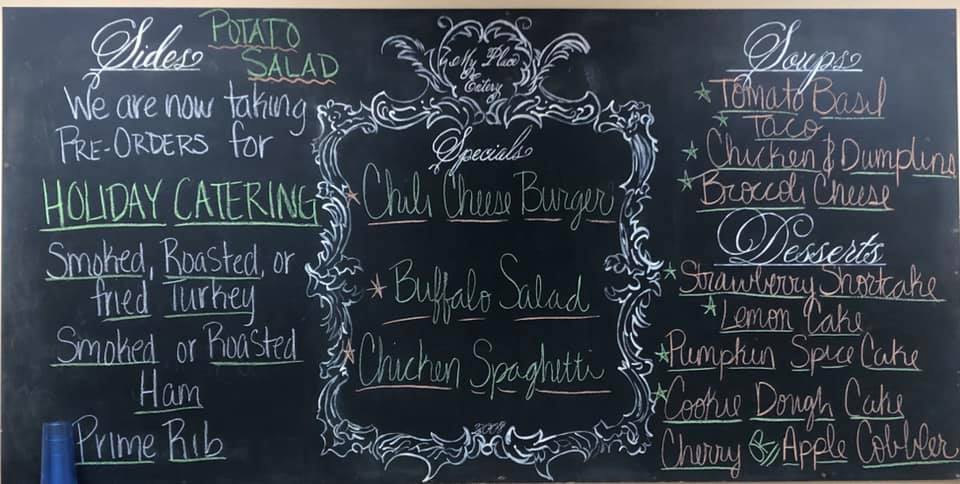 Sides
POTATO
SALAD
We are now taking
PRE-ORDERS for
HOLIDAY CATERING
Smoked, Roasted, or
fried Turkey
Smoked or Roasted
Ham
Prime Rib
My Place
Eatery
Specials
Chili Cheese Burger
Buffalo Salad
Chicken Spaghetti
2009
Soups
Tomato Basil
Taco
Chicken & Dumplins
Broccoli Cheese
Desserts
Strawberry Shortcake
Lemon Cake
Pumpkin Spice Cake
Cookie Dough Cake
Cherry & Apple Cobbler